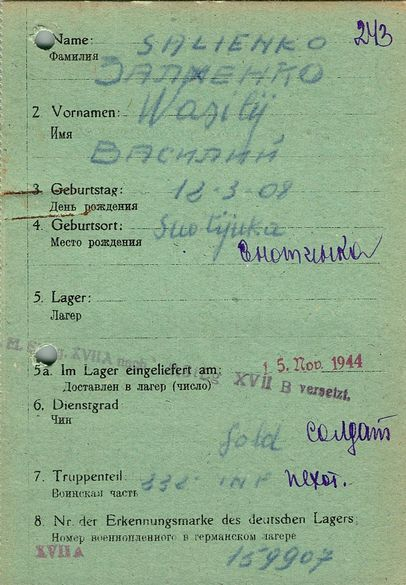 Name: SALIENKO 243
Фамилия
ЗАЛЖЕНКО
2. Vornamen: Wazilij
Имя
ВАСИЛИЙ
3. Geburtstag: 12-3-08
День рождения
4. Geburtsort: Snotijnka
Место рождения
5. Lager:
Лагер
XVII A nach
15. Nov. 1944
5a. Im Lager eingeliefert am:
XVII B versetzt.
Доставлен в лагер (число)
6. Dienstgrad
Чин
Sold солдат
7. Truppenteil: INF пехот.
Воинская часть
8. Nr. der Erkennungsmarke des deutschen Lagers:
Номер военнопленного в германском лагере
XVII A
159907